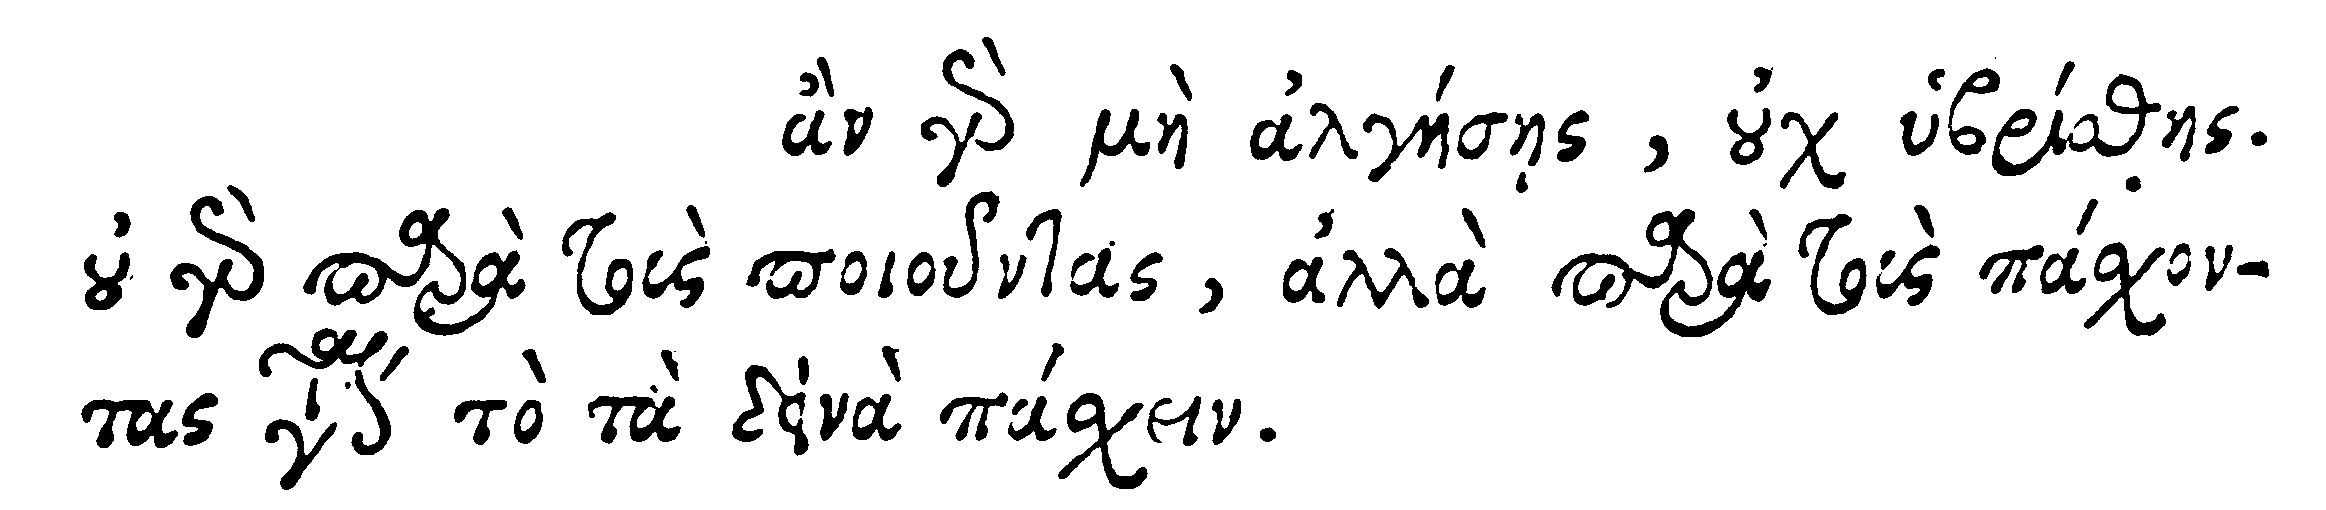 ἂν γὰρ μὴ ἀλγήσῃς, οὐχ ὑβρίσθης.
οὐ γὰρ παρὰ τοὺς ποιοῦντας, ἀλλὰ παρὰ τοὺς πάσχον-
τας γίνεται τὸ τὰ δεινὰ πάσχειν.